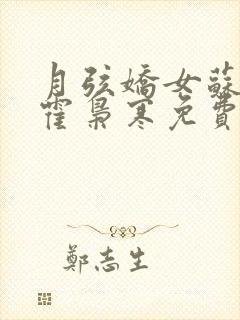 月弦嬌女蘇
霍梟寒免費
鄭志生